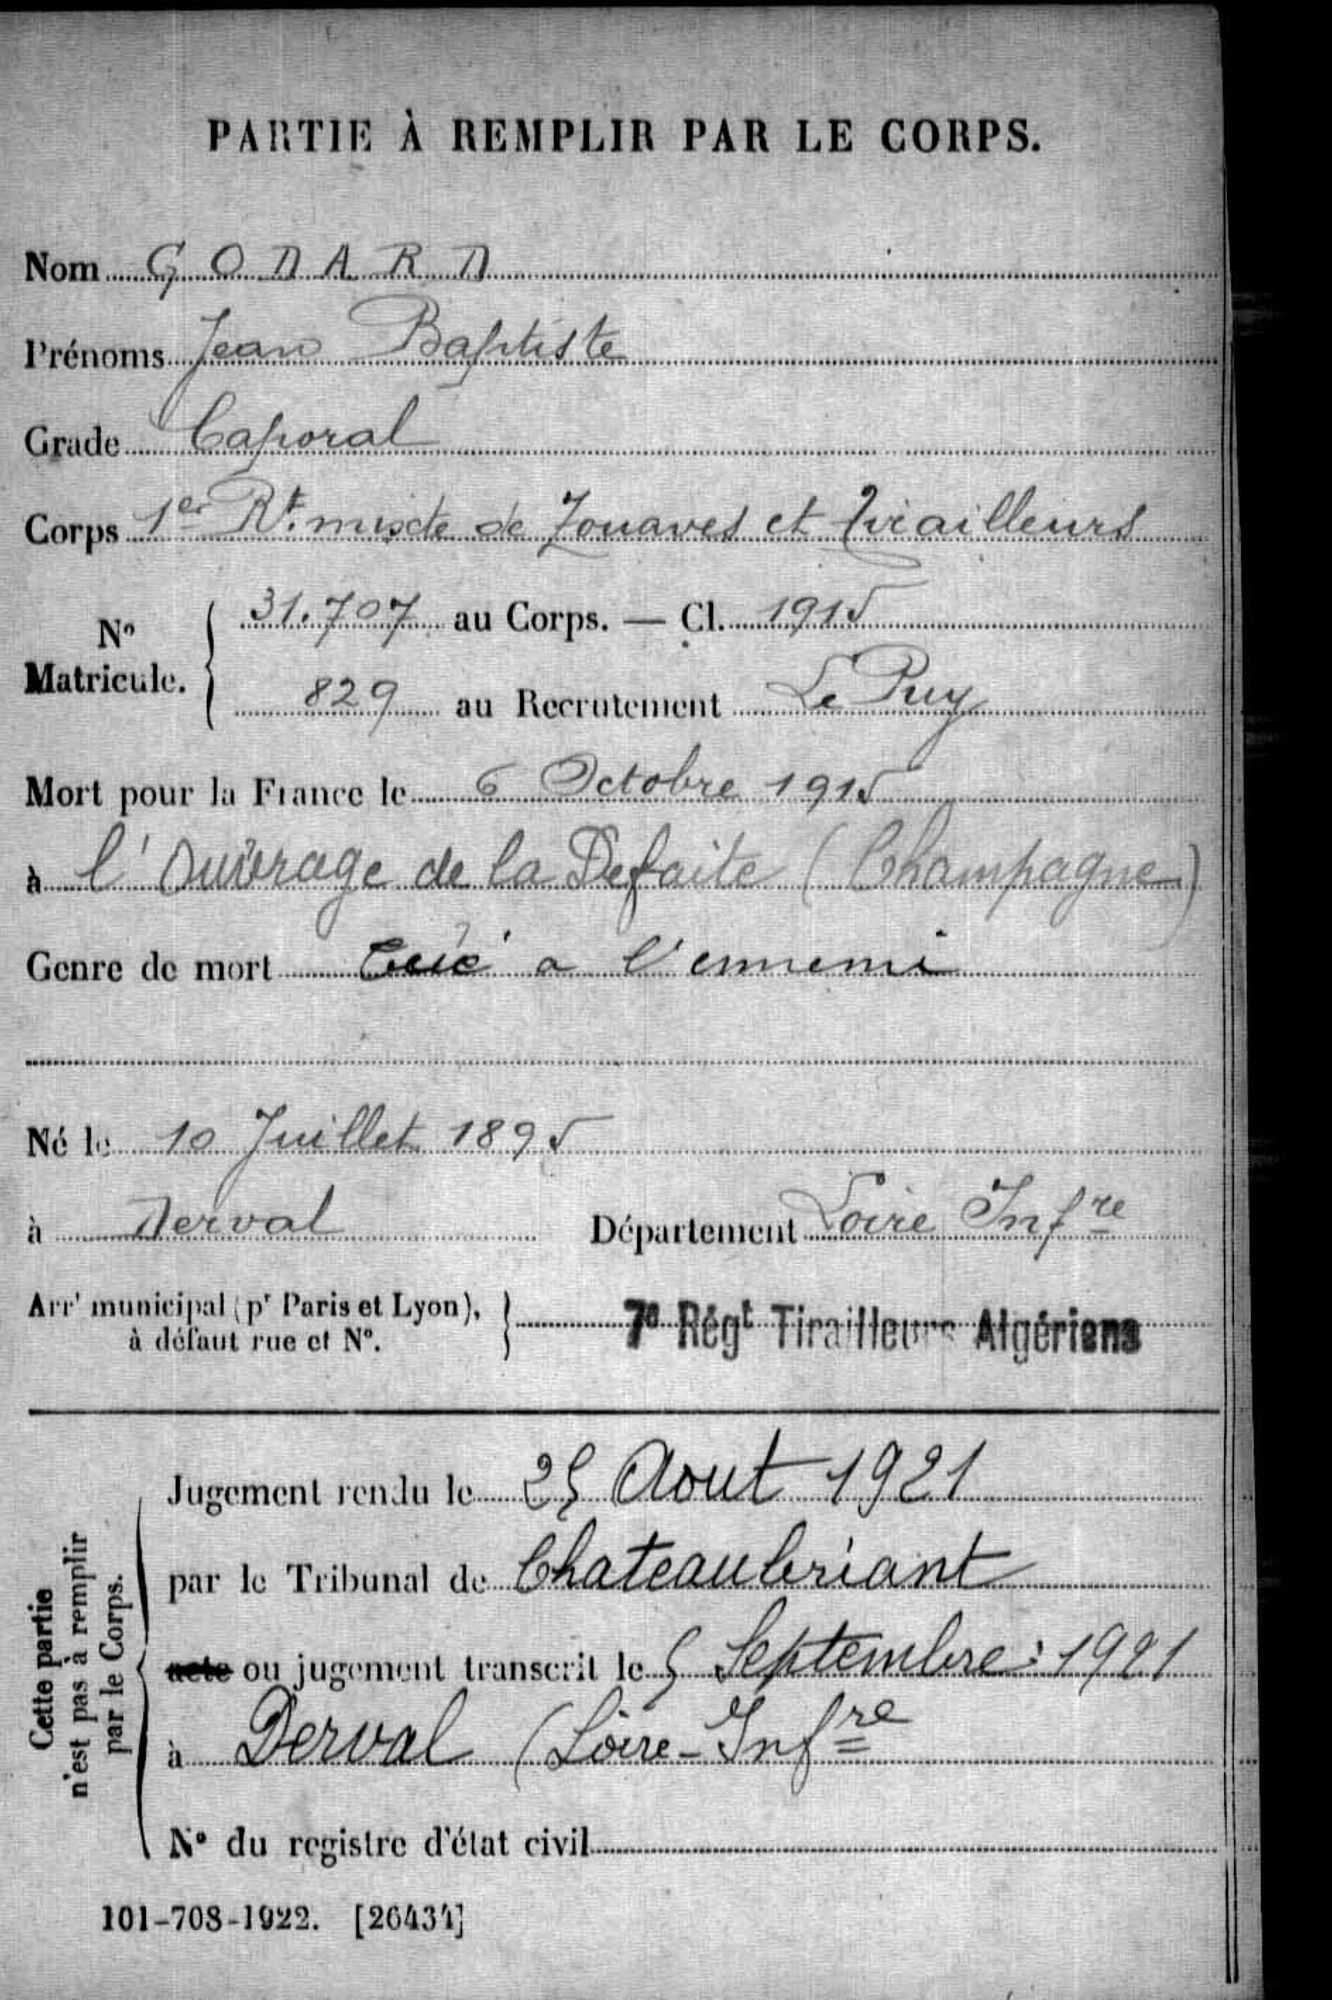 PARTIE À REMPLIR PAR LE CORPS.
Nom GODARD
Prénoms Jean Baptiste
Grade Caporal
Corps 1er Rt. mixte de Zouaves et Tirailleurs
N° Matricule. 31.707 au Corps. — Cl. 1915
829 au Recrutement Le Puy
Mort pour la France le 6 Octobre 1915
à l'Ouvrage de la Defaite (Champagne)
Genre de mort tué a l'ennemi
Né le 10 Juillet 1895
à Derval Département Loire Infre
Arrt municipal (pr Paris et Lyon), à défaut rue et N°.
7e Régt Tirailleurs Algériens
Cette partie n'est pas à remplir par le Corps.
Jugement rendu le 25 Aout 1921
par le Tribunal de Chateaubriant
acte ou jugement transcrit le 5 Septembre 1921
à Derval (Loire-Infre
N° du registre d'état civil
101-708-1922. [26434]